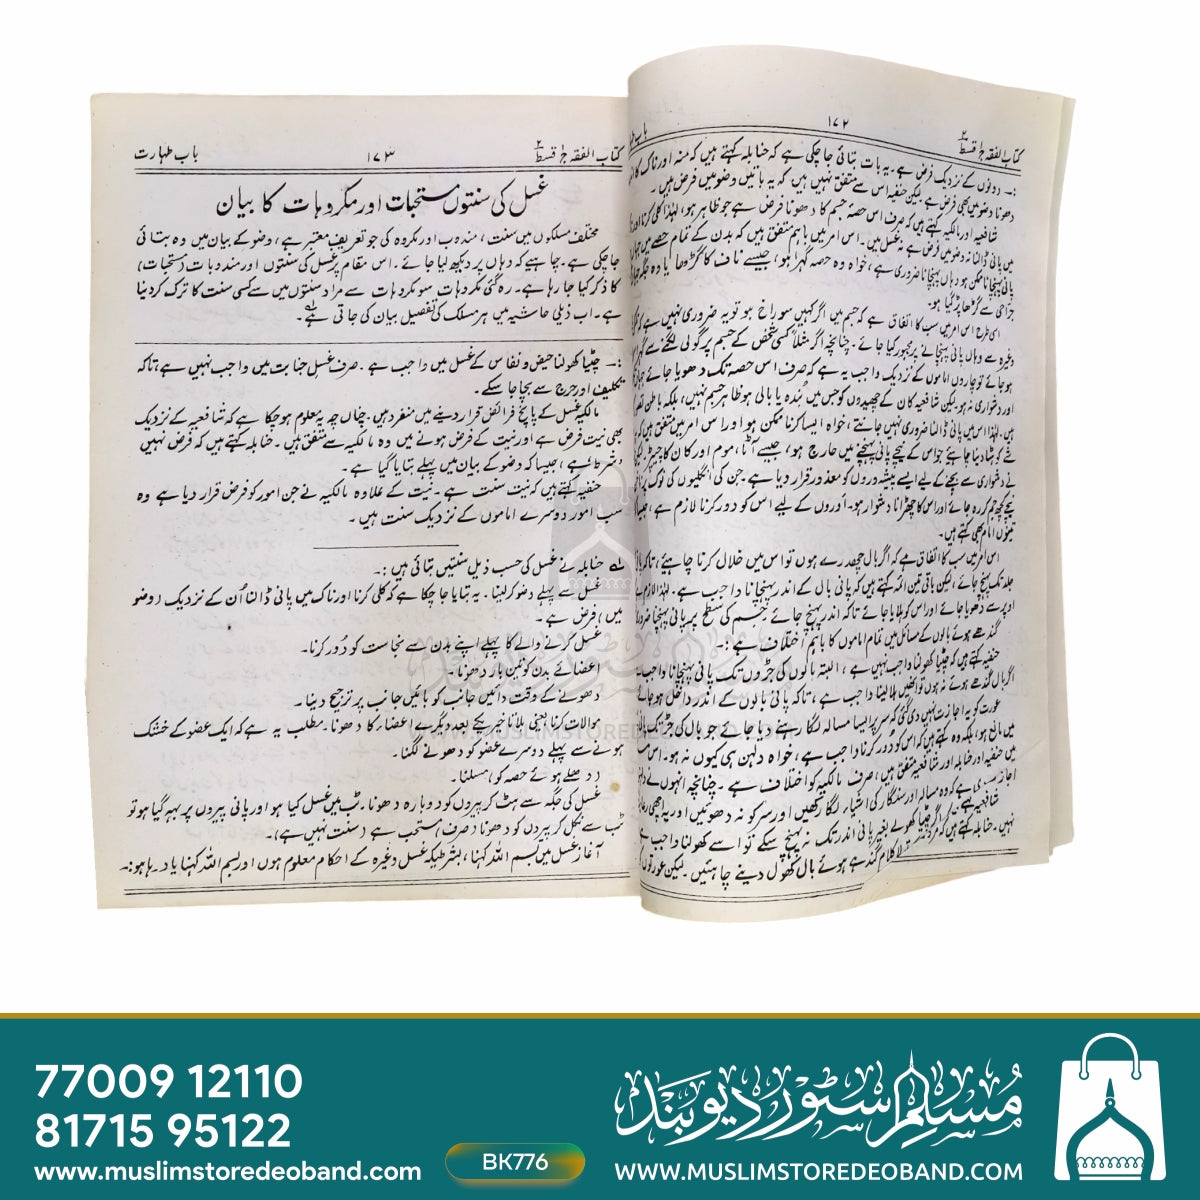 کتاب الفقہ جلد قسط ۲
۱۷۲
باب
:۔ دونوں کے نزدیک فرض ہے۔ یہ بات بتائی جاچکی ہے کہ حنابلہ کہتے ہیں کہ منہ اور ناک کا
دھونا وضو میں بھی فرض ہے لیکن حنفیہ اس سے متفق نہیں ہیں کہ یہ باتیں وضو میں فرض ہیں۔
شافعیہ اور مالکیہ کہتے ہیں کہ صرف اس حصہ جسم کا دھونا فرض ہے جو ظاہر ہو، لہٰذا کلی کرنا اور
میں پانی ڈالنا نہ وضو میں فرض ہے نہ غسل میں۔ اس امر میں باہم متفق ہیں کہ بدن کے تمام حصے میں جہاں
پانی پہنچانا ممکن ہو وہاں پہنچانا ضروری ہے، خواہ وہ حصہ گہرا ہو، جیسے ناف کا گڑھا یا وہ جگہ
جراحی سے گڑھا پڑ گیا ہو۔
اسی طرح اس امر میں سب کا اتفاق ہے کہ جسم میں اگر کہیں سوراخ ہو تو یہ ضروری نہیں ہے کہ
وغیرہ سے وہاں پانی پہنچانے پر مجبور کیا جائے۔ چنانچہ اگر مثلاً کسی شخص کے جسم پر گولی لگنے سے گہرا
ہو جائے تو چاروں اماموں کے نزدیک واجب یہ ہے کہ صرف اس حصہ تک دھویا جائے جہاں
اور دشواری نہ ہو لیکن شافعیہ کان کے چھیدوں کو جس میں بُندہ یا بالی ہو ظاہر جسم نہیں، بلکہ باطن
ہیں۔ لہٰذا اس میں پانی ڈالنا ضروری نہیں جانتے، خواہ ایسا کرنا ممکن ہو اور اس امر میں متفق ہیں کہ
شے کو ہٹا دینا چاہیے جو اس کے نیچے پانی پہنچنے میں حارج ہو، جیسے آٹا، موم اور کان کا چیپڑ
نے دشواری سے بچنے کے لیے ایسے پیشہ دروں کو معذور قرار دیا ہے۔ جن کی انگلیوں کی نوک
نیچے کچھ جم کر رہ جائے اور اس کا چھڑانا دشوار ہو۔ اوروں کے لیے اس کو دور کرنا لازم ہے،
تینوں امام بھی کہتے ہیں۔
اس امر میں سب کا اتفاق ہے کہ اگر بال چھدرے ہوں تو اس میں خلال کرنا چاہیے، تاکہ پانی
جلد تک پہنچ جائے، لیکن باقی تین ائمہ کہتے ہیں کہ پانی بال کے اندر پہنچانا واجب ہے۔ لہٰذا لازم
اوپر سے دھویا جائے اور اس کو ہلایا جائے تاکہ اندر پہنچ جائے۔ جسم کی سطح پر پانی پہنچانا
گندھے ہوئے بالوں کے مسائل میں تمام اماموں کا باہم اختلاف ہے:۔
حنفیہ کہتے ہیں کہ چٹیا کھولنا واجب نہیں ہے، البتہ بالوں کی جڑوں تک پانی پہنچانا واجب
اگر بال گندھے ہوئے نہ ہوں تو انہیں ہلا لینا واجب ہے، تاکہ پانی بالوں کے اندر داخل ہو جائے
عورت کو یہ اجازت نہیں دی گئی کہ سر پر ایسا مسالہ لگا رہنے دیا جائے جو بال کی جڑ تک پانی
میں مانع ہو، بلکہ وہ کہتے ہیں کہ اس کو دُور کرنا واجب ہے، خواہ دلہن ہی کیوں نہ ہو۔ اس
میں حنفیہ اور حنابلہ اور شافعیہ متفق ہیں، صرف مالکیہ کو اختلاف ہے۔ چنانچہ انہوں نے
اجازت دی ہے کہ وہ مسالہ اور سنگار کی اشیاء لگا رکھیں اور سر کو نہ دھوئیں اور یہ اچھی
شافعیہ کہتے ہیں کہ اگر چٹیا کھولے بغیر پانی اندر تک نہ پہنچ سکے تو اسے کھولنا واجب ہے
نہیں۔ حنابلہ کہتے ہیں کہ مرد گندھے ہوئے بال کھول دینے چاہئیں۔ لیکن عورتوں
کتاب الفقہ جلد قسط ۲
۱۷۳
باب طہارت
غسل کی سنتوں مستحبات اور مکروہات کا بیان
مختلف مسلکوں میں سنت، مندوب اور مکروہ کی جو تعریف معتبر ہے، وضو کے بیان میں وہ بتائی
جاچکی ہے۔ چاہیے کہ وہاں پر دیکھ لیا جائے۔ اس مقام پر غسل کی سنتوں اور مندوبات (مستحبات)
کا ذکر کیا جا رہا ہے۔ رہ گئی مکروہات سو مکروہات سے مراد سنتوں میں سے کسی سنت کا ترک کر دینا
ہے۔ اب ذیلی حاشیہ میں ہر مسلک کی تفصیل بیان کی جاتی ہے۔
:۔ چٹیا کھولنا حیض و نفاس کے غسل میں واجب ہے۔ صرف غسلِ جنابت میں واجب نہیں ہے تاکہ
تکلیف اور حرج سے بچا جا سکے۔
مالکیہ غسل کے پانچ فرائض قرار دینے میں منفرد ہیں۔ چناں چہ یہ معلوم ہو چکا ہے کہ شافعیہ کے نزدیک
بھی نیت فرض ہے اور نیت کے فرض ہونے میں وہ مالکیہ سے متفق ہیں۔ حنابلہ کہتے ہیں کہ فرض نہیں
شرط ہے، جیسا کہ وضو کے بیان میں پہلے بتایا گیا ہے۔
حنفیہ کہتے ہیں کہ نیت سنت ہے۔ نیت کے علاوہ مالکیہ نے جن امور کو فرض قرار دیا ہے وہ
سب امور دوسرے اماموں کے نزدیک سنت ہیں۔
لے حنابلہ نے غسل کی حسب ذیل سنتیں بتائی ہیں:۔
غسل سے پہلے وضو کر لینا۔ یہ بتایا جا چکا ہے کہ کلی کرنا اور ناک میں پانی ڈالنا اُن کے نزدیک (وضو
میں) فرض ہے۔
غسل کرنے والے کا پہلے اپنے بدن سے نجاست کو دُور کرنا۔
اعضائے بدن کو تین بار دھونا۔
دھونے کے وقت دائیں جانب کو بائیں جانب پر ترجیح دینا۔
موالات کرنا یعنی بلا تاخیر یکے بعد دیگرے اعضاء کا دھونا۔ مطلب یہ ہے کہ ایک عضو کے خشک
ہونے سے پہلے دوسرے عضو کو دھونے لگنا۔
دھلے ہوئے حصہ کو مسلنا۔
غسل کی جگہ سے ہٹ کر پیروں کو دوبارہ دھونا۔ ٹب میں غسل کیا ہو اور پانی پیروں پر بہہ گیا ہو تو
ٹب سے نکل کر پیروں کو دھونا (صرف) مستحب ہے (سنت نہیں ہے)۔
آغاز غسل میں بسم اللہ کہنا، بشرطیکہ غسل وغیرہ کے احکام معلوم ہوں اور بسم اللہ کہنا یاد رہا ہو:۔
WWW.MUSLIMSTOREDEOBAND.COM
77009 12110
81715 95122
www.muslimstoredeoband.com
BK776
مسلم سٹور دیوبند
WWW.MUSLIMSTOREDEOBAND.COM